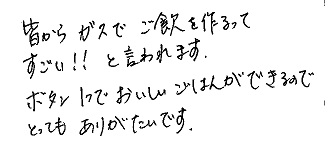 皆から ガスで ご飯を作るって
すごい!! と言われます.
ボタン1つでおいしいごはんができるので
とっても ありがたいです.